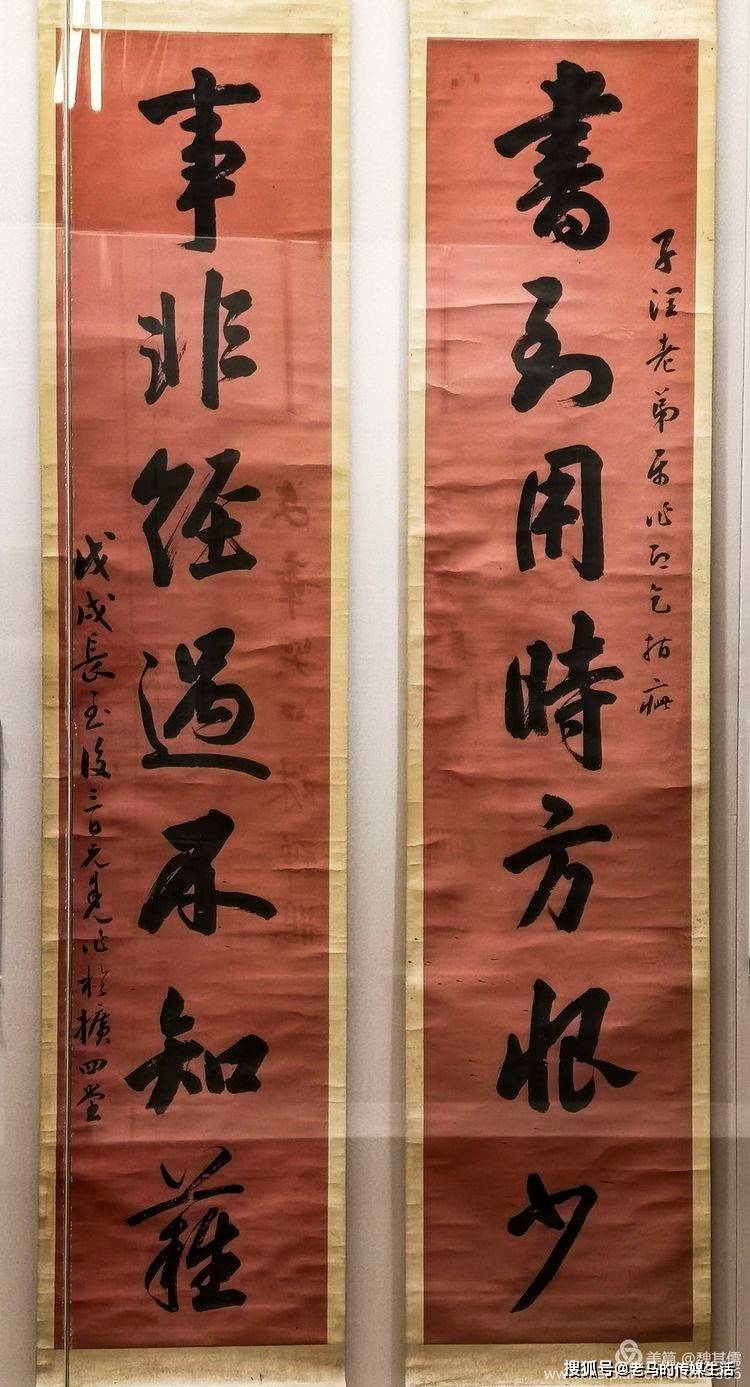 子老弟屬作即乞指疵
書到用時方恨少
事非經過不知難
戊戌長至後三日元作於擴四堂
美篇 @魏其儒
搜狐号@老马的传媒生活